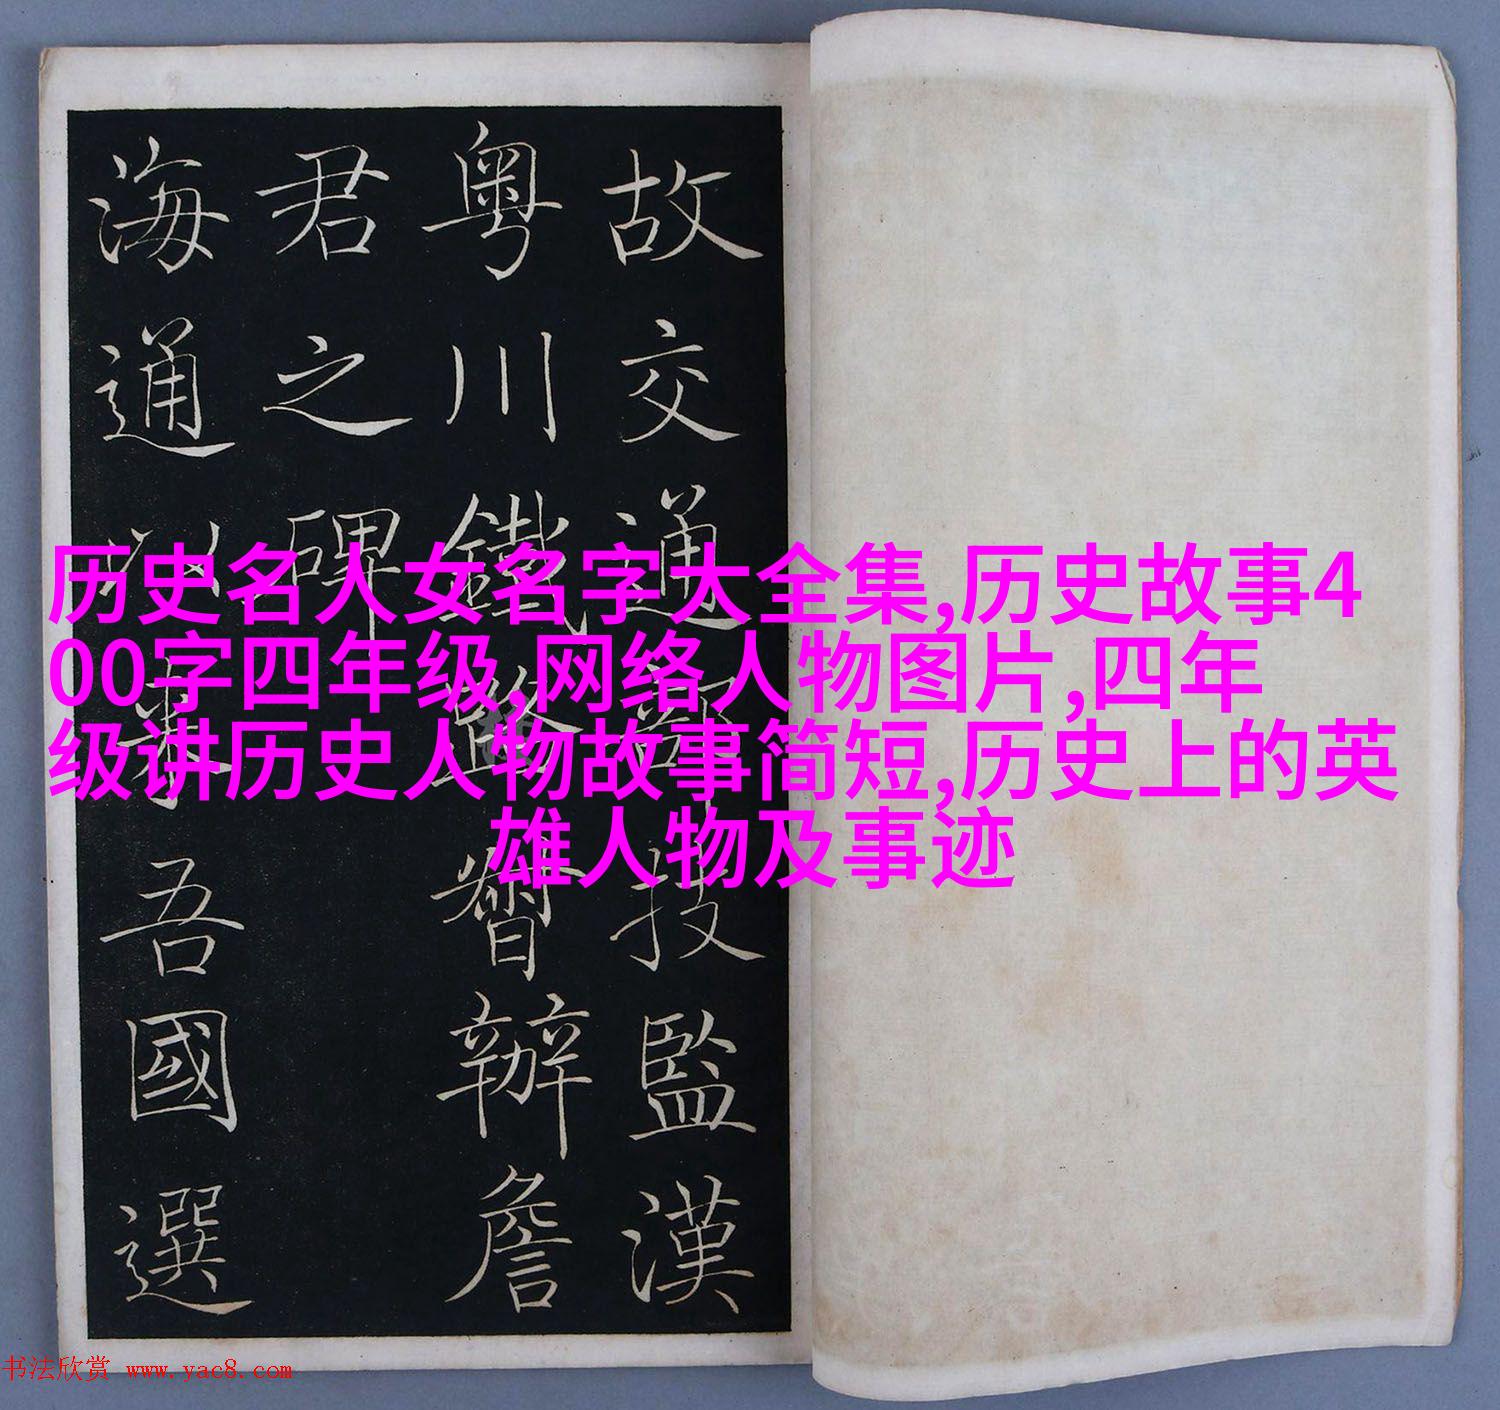 故交通部技監漢
粤川鐵路督辦詹
君之碑
海通以来吾國選
历史名人女名字大全集,历史故事4
00字四年级,网络人物图片,四年
级讲历史人物故事简短,历史上的英
雄人物及事迹
书法欣赏 www.yac8.com